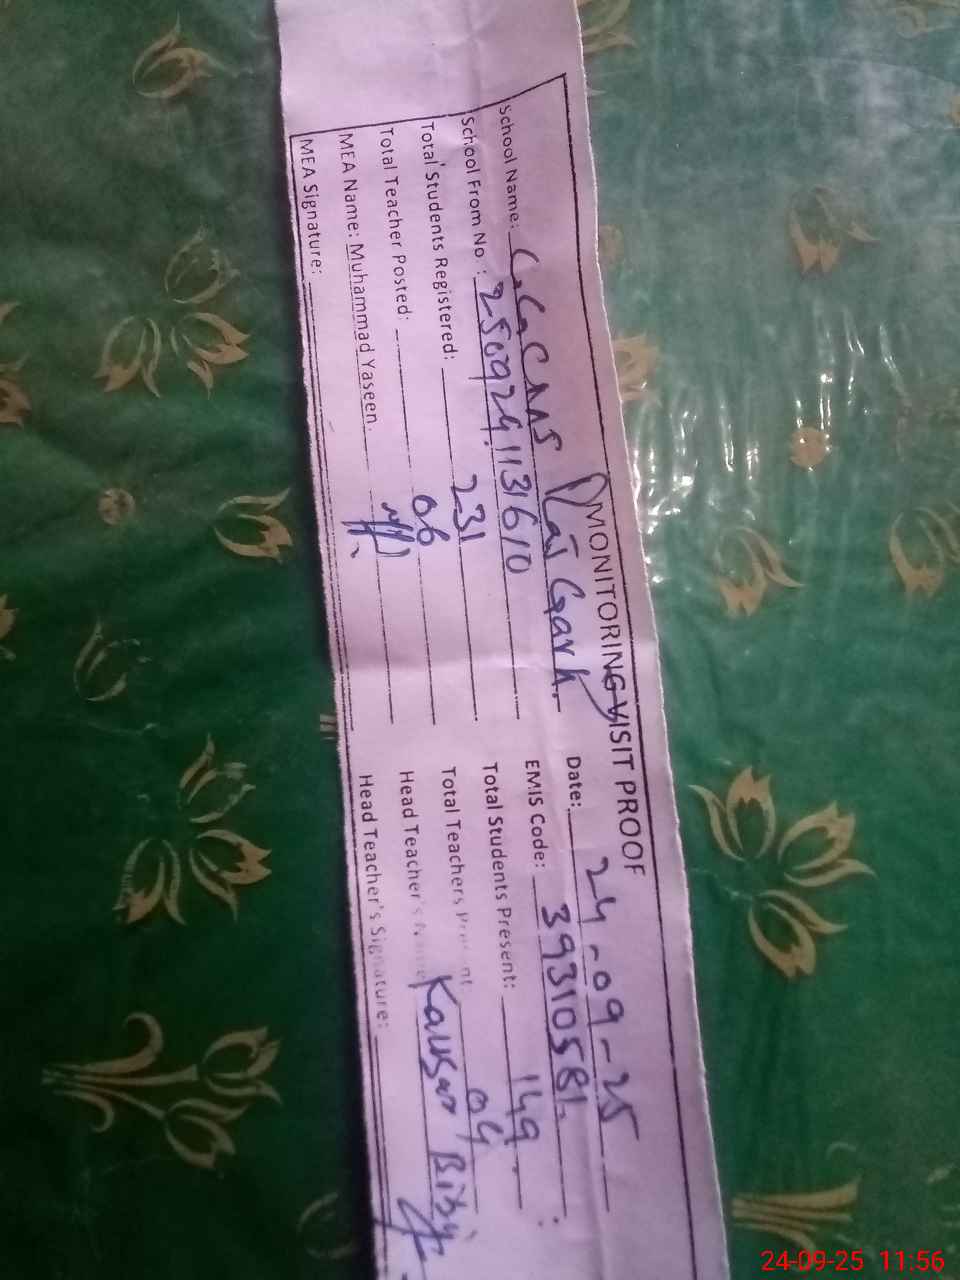 MONITORING VISIT PROOF
School Name: GGCMS Raj Garh. Date: 24-09-25
School From No : 2509241131610 EMIS Code: 39310581
Total Students Registered: 231 Total Students Present: 149
Total Teacher Posted: 06 Total Teachers Present: 04
MEA Name: Muhammad Yaseen. Head Teacher's Name Kausar Bibi
MEA Signature: Head Teacher's Signature:
24-09-25 11:56